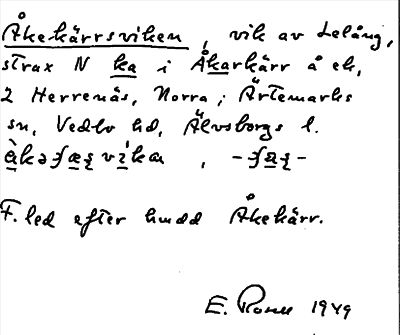 Åkekärrsviken, vik av Lelång,
strax N ka i Åkarkärr å ek,
2 Herrenäs, Norra; Ärtemarks
sn, Vedbo hd, Älvsborgs l.
F. led efter hmdd Åkekärr.
E. 1949